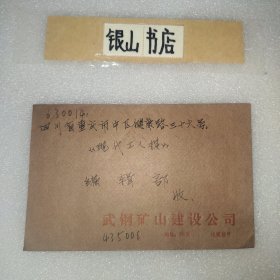 银山书店
630014
四川省重庆市中区健康路三十六号
《现代工人报》
编辑部
收
武钢矿山建设公司
435006